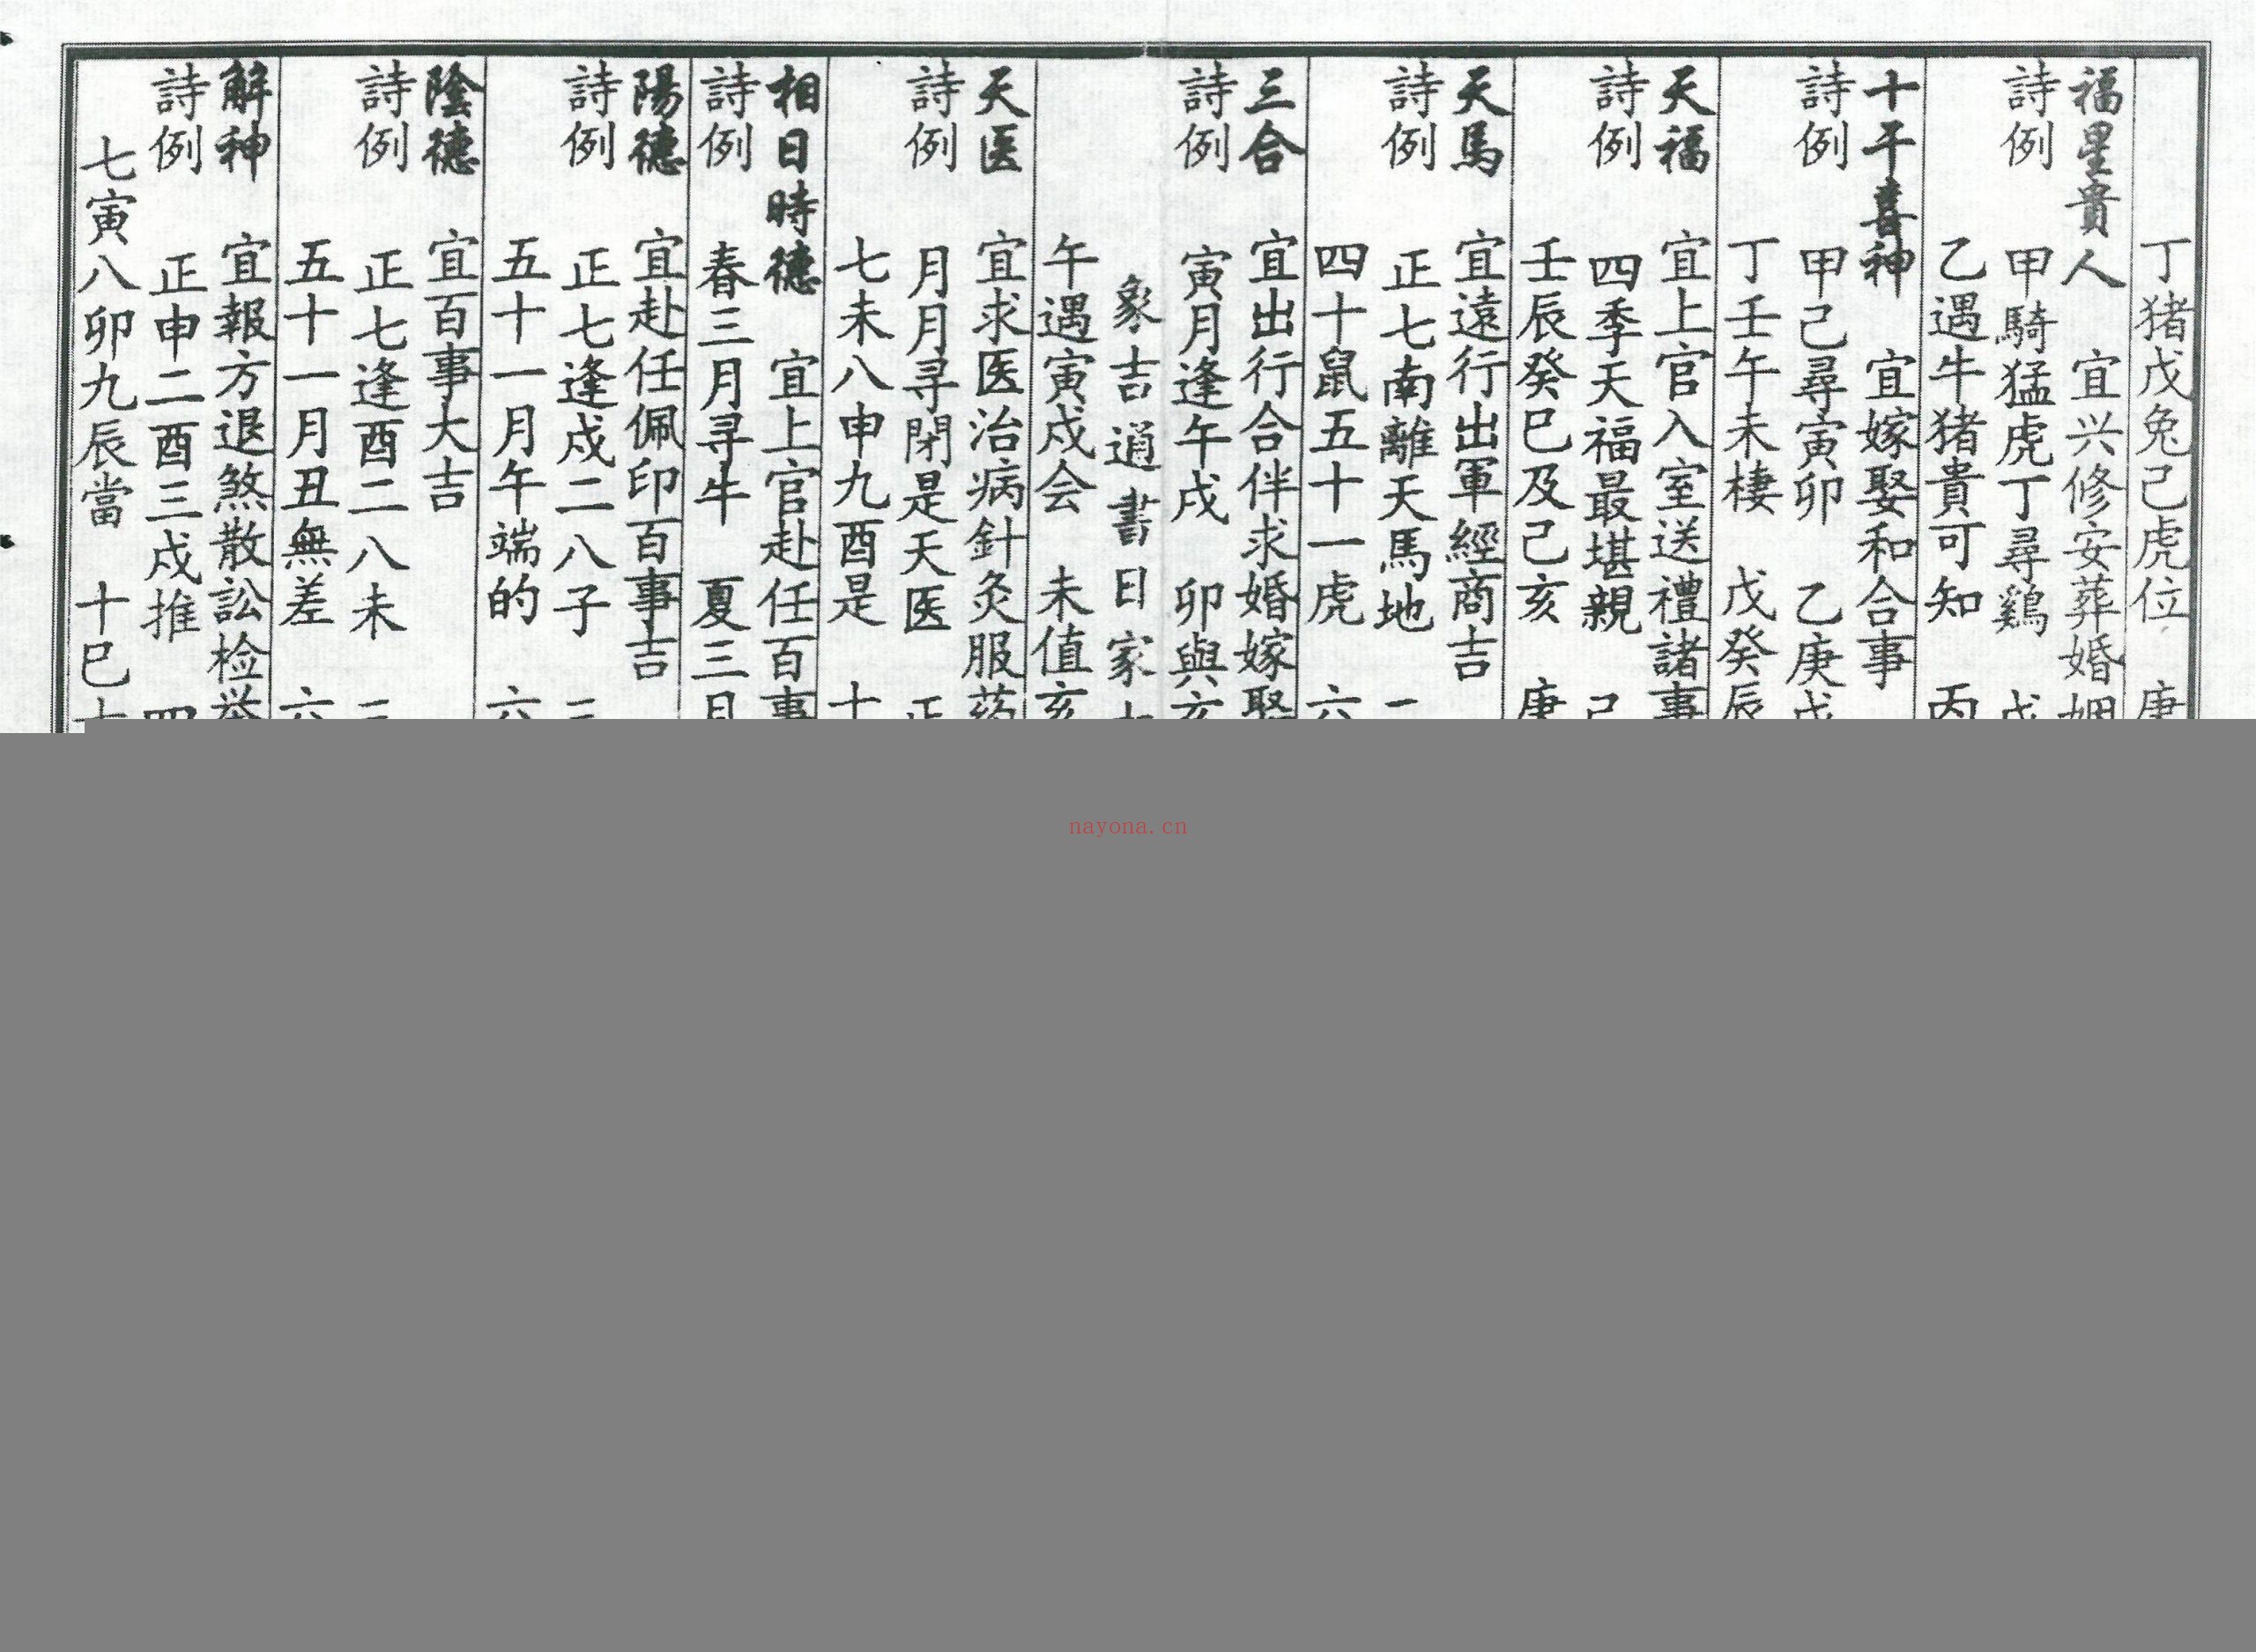 丁猪戊兔己虎位 庚
福星貴人 宜兴修安葬婚姻
詩例 甲騎猛虎丁尋鷄 戊
乙遇牛猪貴可知 丙
十干喜神 宜嫁娶和合事
詩例 甲己尋寅卯 乙庚戌
丁壬午未棲 戊癸辰
天福 宜上官入室送禮諸事
詩例 四季天福最堪親 己
壬辰癸巳及己亥 庚
天馬 宜遠行出軍經商吉
詩例 正七南離天馬地 二
四十鼠五十一虎 六
三合 宜出行合伴求婚嫁娶
詩例 寅月逢午戌 卯與亥
象吉通書日家
午遇寅戌会 未值亥
天医 宜求医治病針灸服药
詩例 月月寻閉是天医 正
七未八申九酉是 十
相日時德 宜上官赴任百事
詩例 春三月寻牛 夏三月
陽德 宜赴任佩印百事吉
詩例 正七逢戌二八子 三
五十一月午端的 六
陰德 宜百事大吉
詩例 正七逢酉二八未 三
五十一月丑無差 六
解神 宜報方退煞散訟检举
詩例 正申二酉三戌推 四
七寅八卯九辰當 十巳十
nayona.cn